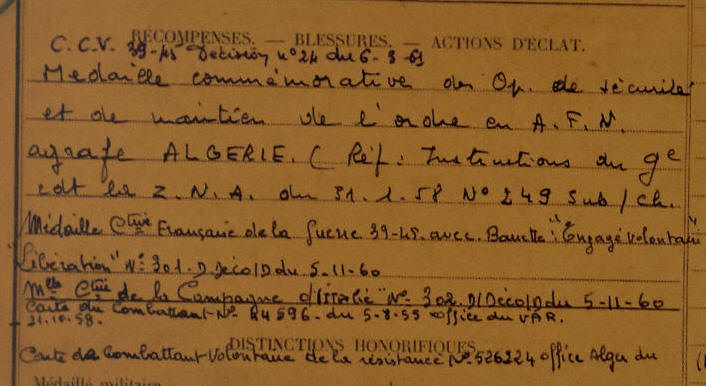 RÉCOMPENSES. — BLESSURES. — ACTIONS D'ÉCLAT.
C.C.V. 39-45 Décision n°24 du 6-3-61
Medaille commémorative des Op. de sécurité
et de maintien de l'ordre en A.F.N.
agrafe ALGERIE. (Réf: Instructions du Ge
cdt la Z.N.A. du 31.1.58 N° 249 Sub/Ch.
Médaille Ctive Française de la Guerre 39-45 avec Barrette: "Engagé Volontaire"
"Libération" N° 301.D/Déco/D du 5-11-60
Mlle Ctive de la Campagne d'Italie N° 302.D/Déco/D du 5-11-60
Carte du Combattant N° 24596 du 5-8-55 office du VAR.
DISTINCTIONS HONORIFIQUES
Carte de Combattant Volontaire de la résistance N° 526224 office Alger du
21.10.58.
Médaille militaire